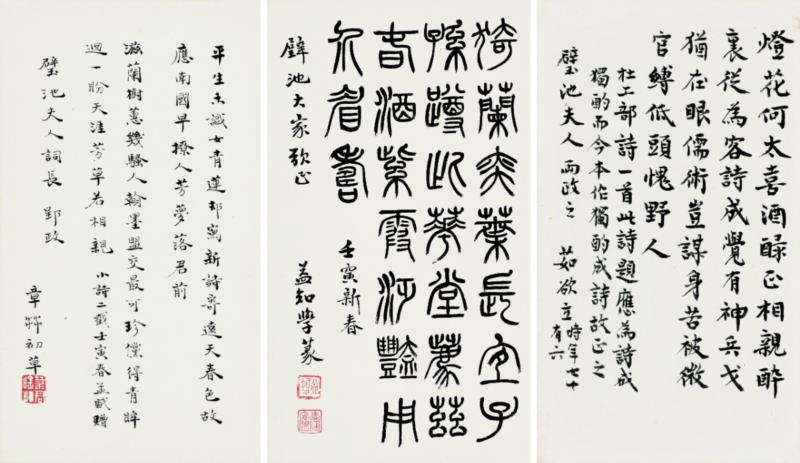 燈花何太喜酒醁正相親醉
裏從為客詩成覺有神兵戈
猶在眼儒術豈謀身苦被微
官縛低頭愧野人
杜工部詩一首此詩題應為詩成
獨酌而今本作獨酌成詩故正之
璧池夫人兩政之 茹欲立時年七十有六
猗蘭奕葉長宜子
孫此華堂薦茲
春酒紫霞豔用
介眉壽
璧池大家正
壬寅新春
益知學篆
平生未識女青蓮却寫新詩寄遠天春色故
應南國早撩人芳夢落君前
滋蘭樹蕙幾騷人翰墨盟交最可珍儻得青眸
迴一盼天涯芳草若相親 小詩二截壬寅春孟賦贈
璧池夫人詞長郢政
章初草